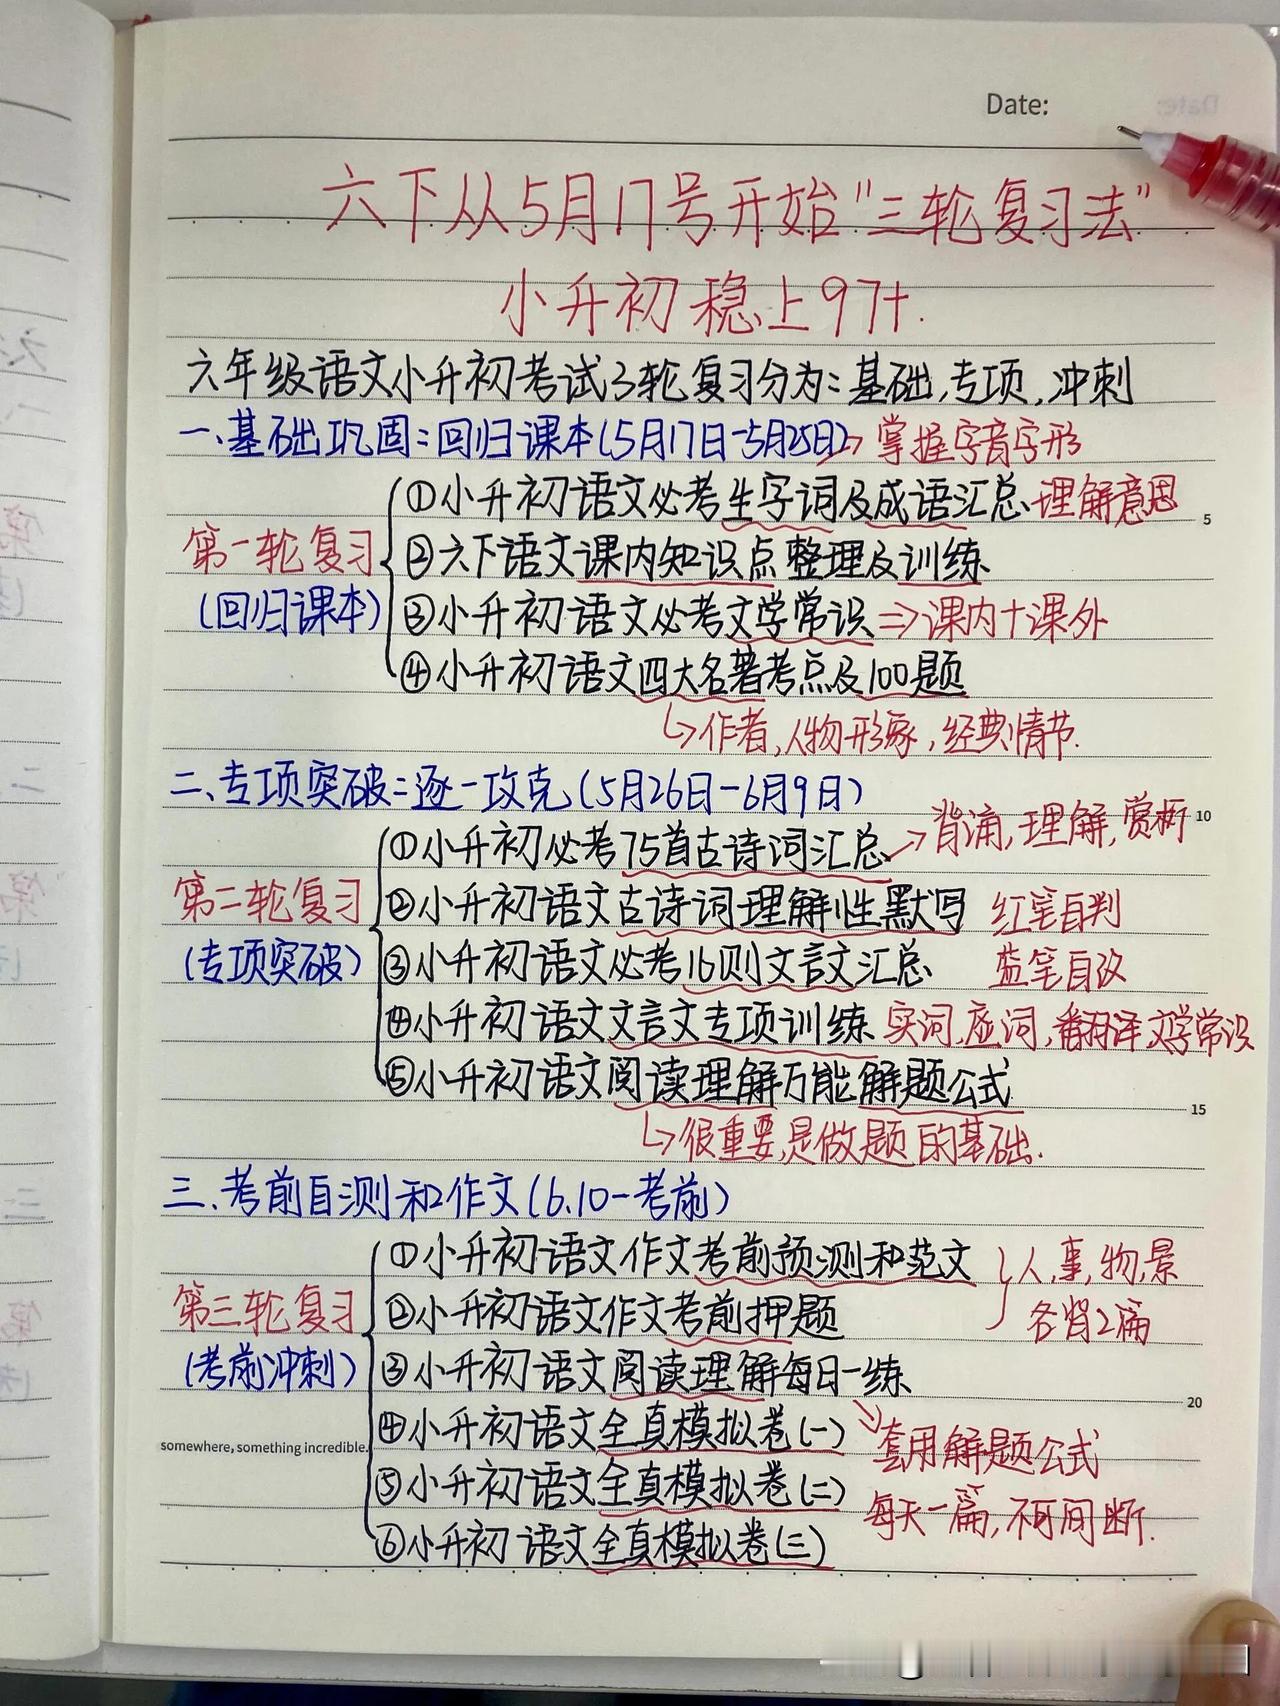 Date:
六下从5月17号开始"三轮复习法"
小升初稳上97+.
六年级语文小升初考试3轮复习分为:基础,专项,冲刺
一、基础巩固:回归课本(5月17日-5月25日)→掌握字音字形
第一轮复习
(回归课本)
①小升初语文必考生字词及成语汇总 理解意思
5
②六下语文课内知识点整理及训练
③小升初语文必考文学常识⇒课内+课外
④小升初语文四大名著考点及100题
↳作者,人物形象,经典情节.
二、专项突破:逐一攻克(5月26日-6月9日)
10
第二轮复习
(专项突破)
①小升初必考75首古诗词汇总→背诵,理解,赏析
②小升初语文古诗词理解性默写 红笔自判
③小升初语文必考16则文言文汇总 蓝笔自改
④小升初语文文言文专项训练 实词,虚词,翻译,文学常识
⑤小升初语文阅读理解万能解题公式
15
↳很重要,是做题的基础.
三、考前自测和作文(6.10-考前)
第三轮复习
(考前冲刺)
①小升初语文作文考前预测和范文 }人,事,物,景
②小升初语文作文考前押题 各背2篇
③小升初语文阅读理解每日一练
20
④小升初语文全真模拟卷(一) 套用解题公式
somewhere, something incredible.
⑤小升初语文全真模拟卷(二) 每天一篇,不可间断.
⑥小升初语文全真模拟卷(三)